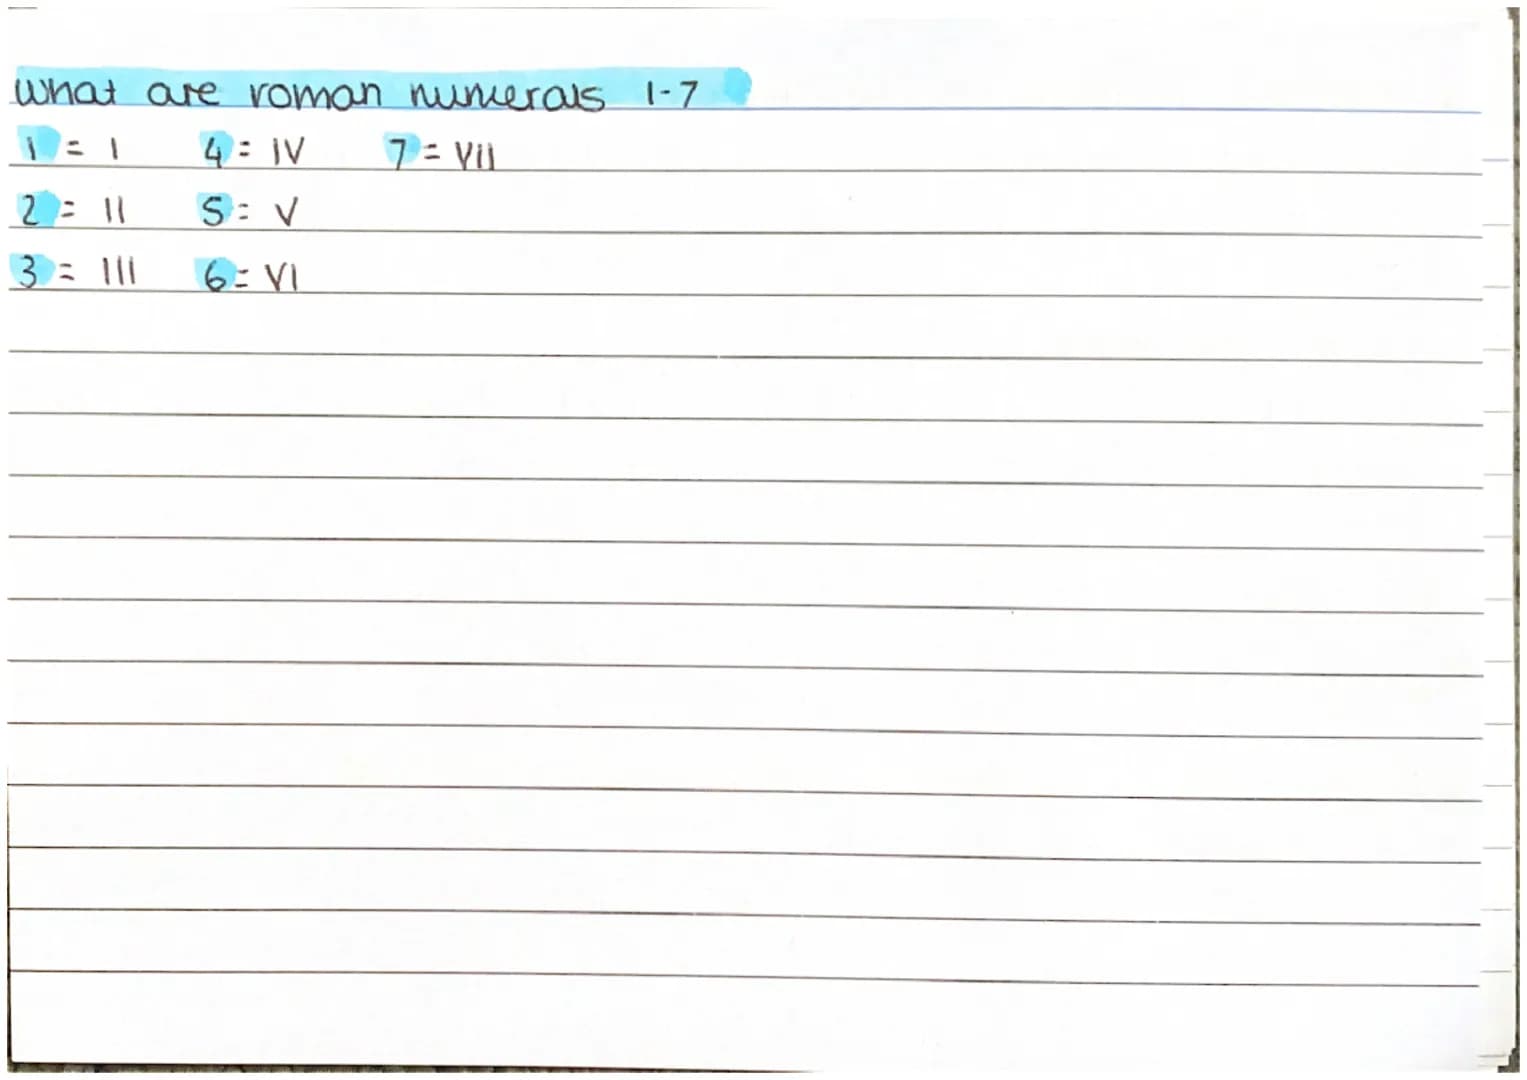 what are roman numerals 1-7
1 = I 4 = IV 7 = VII
2 = II 5 = V
3 = III 6 = VI